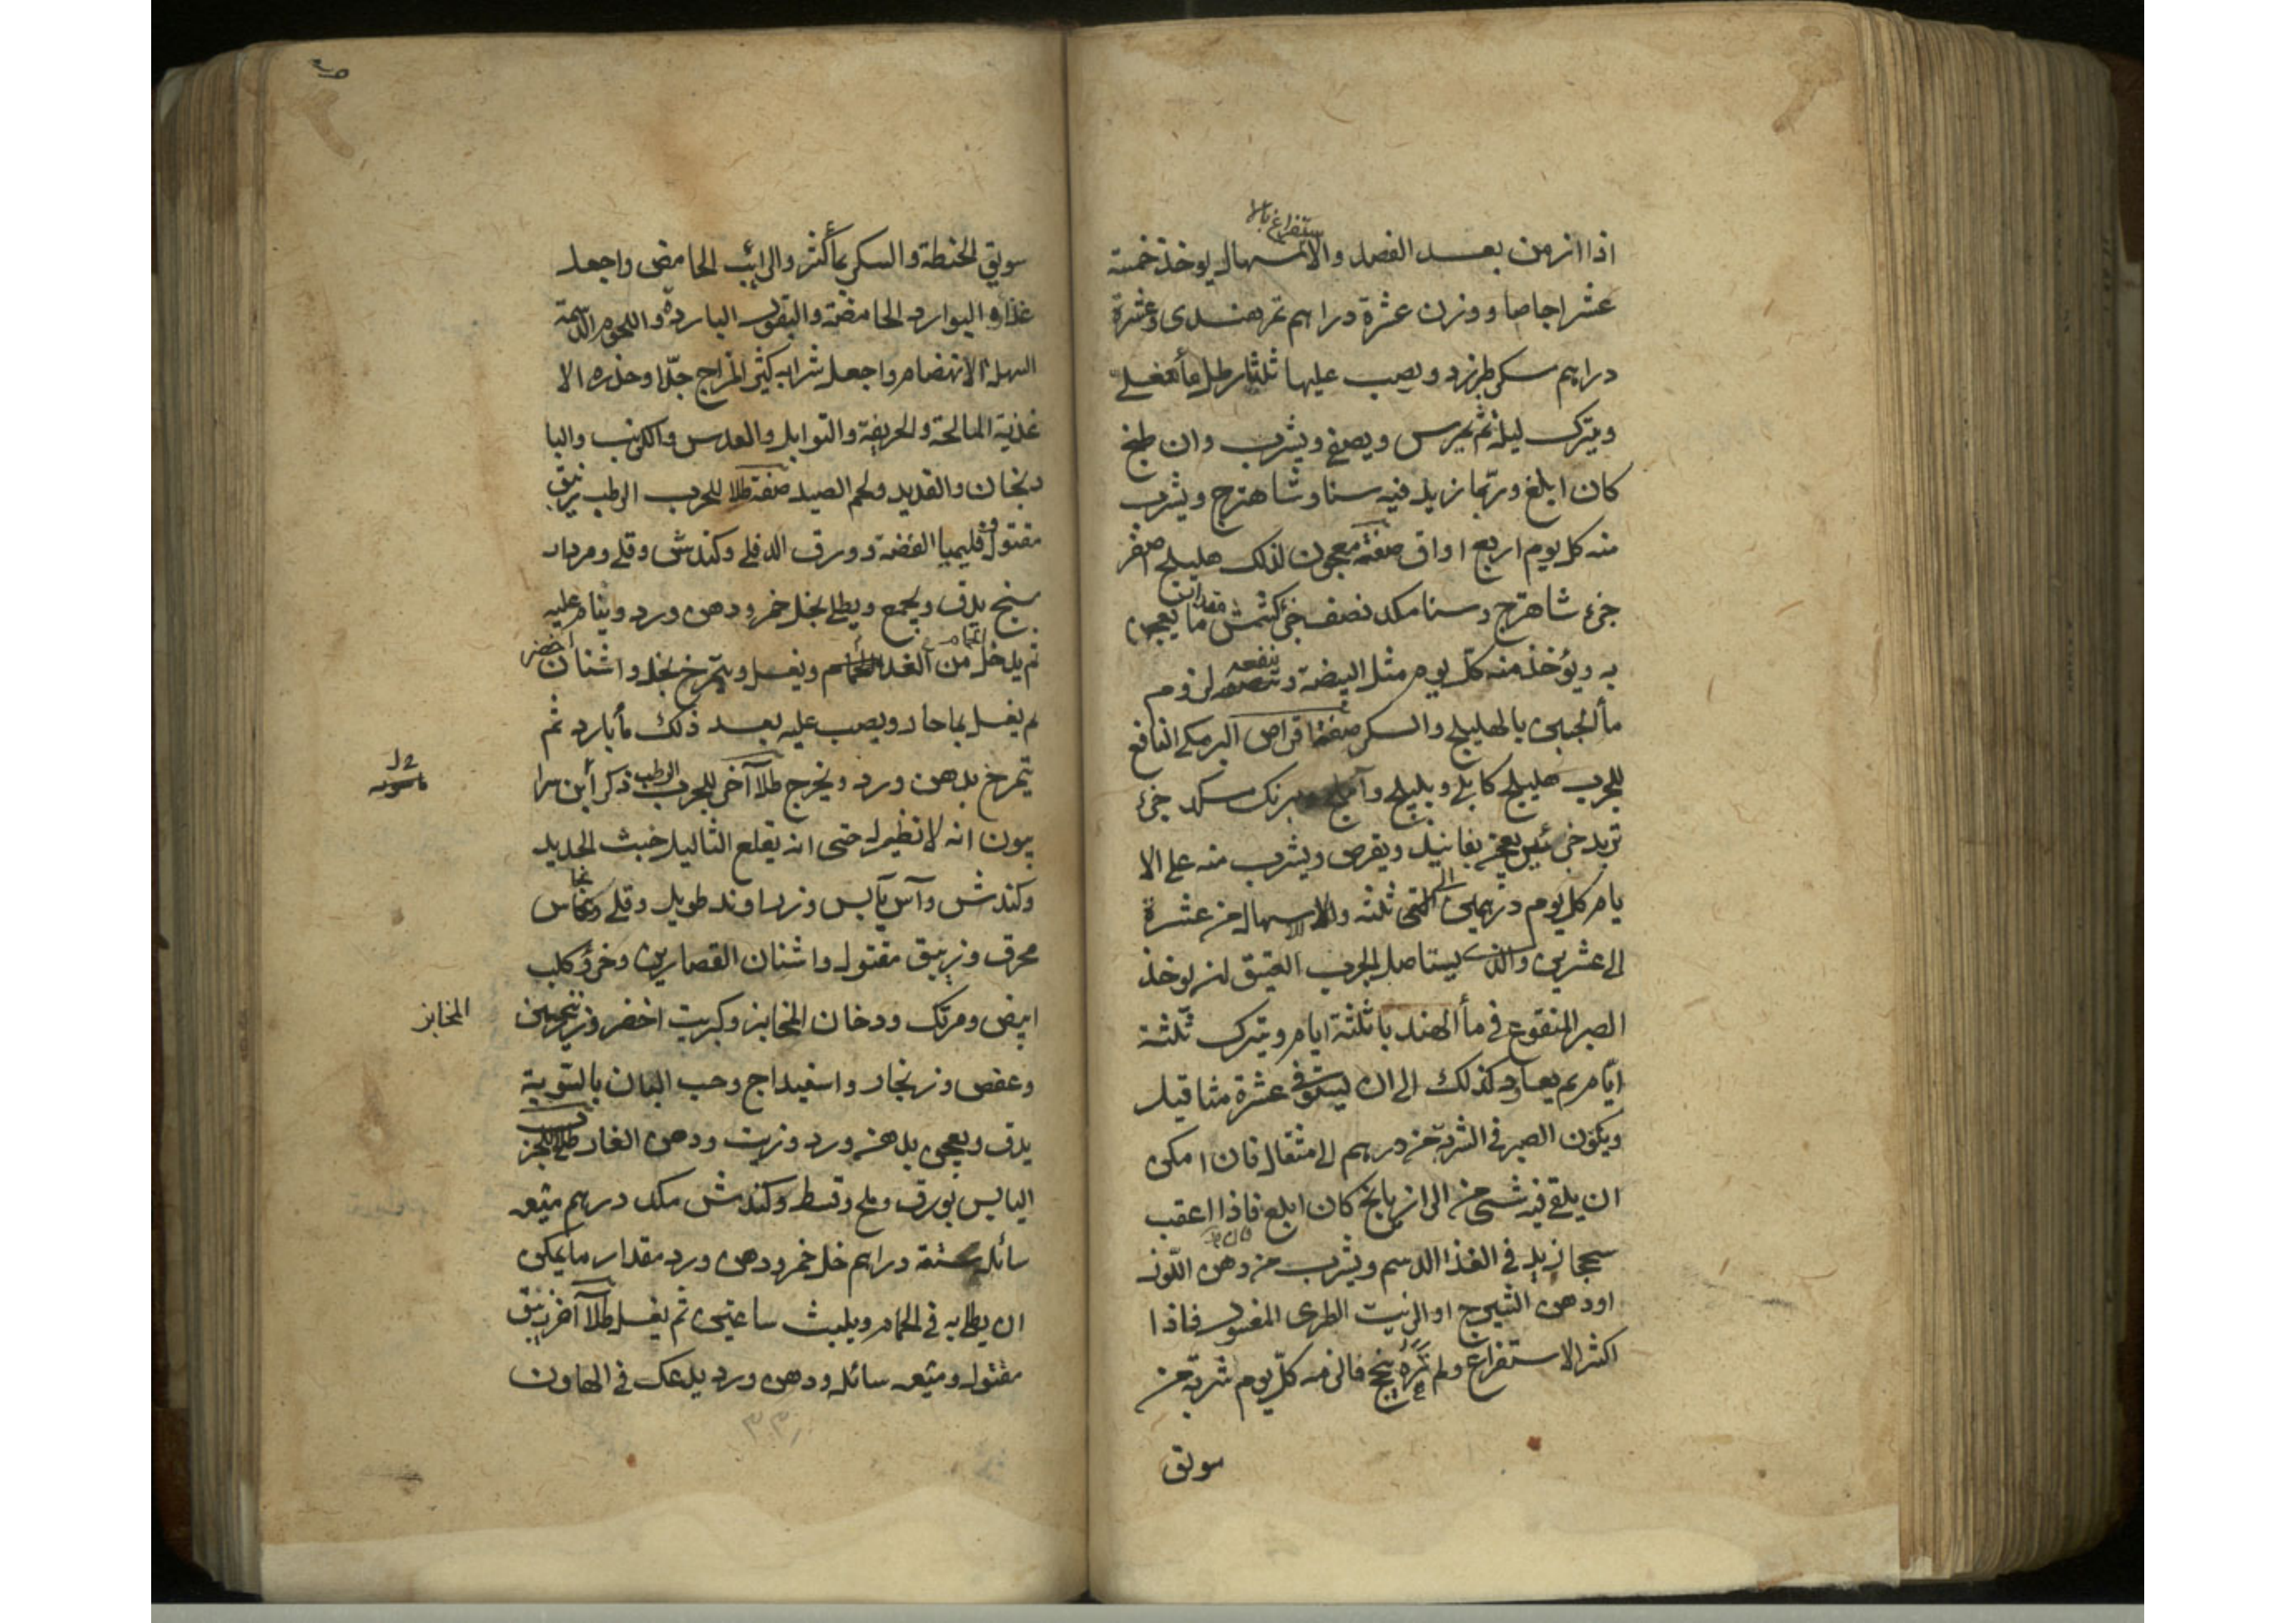 اذا ازمن بعد الفصد والاسهال يوخذ خمسة
ستفراغ بالا
عشر اجاصا ووزن عشرة دراهم تمر هندى وعشرة
دراهم سكر طبرزد ويصب عليها ثلثا رطل مأ مغلى
ويترك ليلة ثم يمرس ويصفى ويشرب وان طبخ
كان ابلغ وربما زيد فيه سنا وشاهترج ويشرب
منه كل يوم اربع اواق صفة معجون لذلك هليلج اصفر
جزء شاهترج وسنا مكد نصف جزء كشمش مقدار ما يعجن
به ويؤخذ منه كل يوم مثل البيضة وينفعه لزوم
مأ الجبن بالهليلج والسكر صفة اقراص البرمكى النافع
للجرب هليلج كابلى وبليلج وآملج برنك مكد جزء
تربد جزئين يعجن بفانيد ويقرص ويشرب منه على الا
يام كل يوم درهمين الى ثلثة والاسهال من عشرة
الى عشرين والذى يستاصل الجرب العتيق ان يوخذ
الصبر المنقوع فى مأ الهندبا ثلثة ايام ويترك ثلثة
ايام ثم يعاود كذلك الى ان يستوفى عشرة مثاقيل
ويكون الصبر فى الشربة من درهم الى مثقال فان امكن
ان يلقى فيه شئ من الرازيانج كان ابلغ فاذا اعقب
سحجا زيد فى الغذا الدسم ويشرب من دهن اللوز
اودهن الشيرج او الزيت الطرى المغسول فاذا
اكثر الاستفراغ ولم ينجح فالزمه كل يوم شربة من
سويق
سويق الحنطة والسكر بمأ كثر والرائب الحامض واجعل
غذاوه البوارد الحامضة والبقول الباردة واللحوم الدسمة
السهلة الانهضام واجعل شرابه كثير المزاج جدا وحذره الا
غذية المالحة والحريفة والتوابل والعدس والكرنب والبا
دنجان والقديد ولحم الصيد صفة طلا للجرب الرطب زيبق
مقتول وقليميا الفضة وورق الدفلى وكندش وقلى ومردار
سنج يدق ويجمع ويطلى بخل خمر ودهن ورد وينام عليه
ثم يدخل من الغد الحمام ويغسل ويتمرخ بخل واشنان اخضر
ثم يغسل بماحار ويصب عليه بعد ذلك مأ بارد ثم
يتمرخ بدهن ورد ويخرج طلا آخر للجرب الرطب ذكر ابن سرا
بيون انه لانظير له حتى انه يقلع الثاليل خبث الحديد
وكندش وآس يابس وزراوند طويل وقلى ونحاس
محرق وزيبق مقتول واشنان القصارين وخرؤ كلب
ابيض ومرتك ودخان المخابز وكبريت اخضر وزرنيخين
المخابز
وعفص وزنجار واسفيداج وحب البان بالسوية
يدق ويعجن بدهن ورد وزيت ودهن الغار طلا للجرب
اليابس بورق وملح وقسط وكندش مكد درهم ميعه
سائله ستة دراهم خل خمر ودهن ورد مقدار مايمكن
ان يطلى به فى الحمام ويلبث ساعتين ثم يغسل طلا آخر زيبق
مقتول وميعه سائله ودهن ورد يدعك فى الهاون